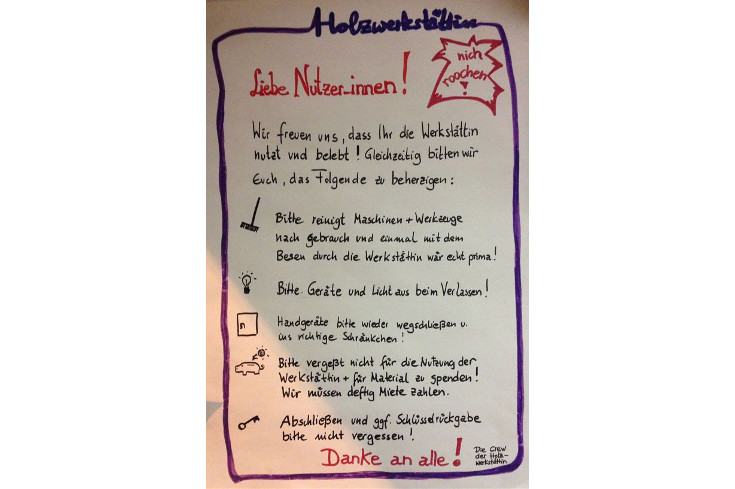 Holzwerkstättin
nich
roochen
!
Liebe Nutzer_innen!
Wir freuen uns, dass Ihr die Werkstättin
nutzt und belebt! Gleichzeitig bitten wir
Euch, das Folgende zu beherzigen:
Bitte reinigt Maschinen + Werkzeuge
nach gebrauch und einmal mit dem
Besen durch die Werkstättin wär echt prima!
Bitte Geräte und Licht aus beim Verlassen!
Handgeräte bitte wieder wegschließen u.
ins richtige Schränkchen!
Bitte vergeßt nicht für die Nutzung der
Werkstättin + für Material zu spenden!
Wir müssen deftig Miete zahlen.
Abschließen und ggf. Schlüsselrückgabe
bitte nicht vergessen!
Danke an alle!
Die Crew
der Holz-
werkstättin